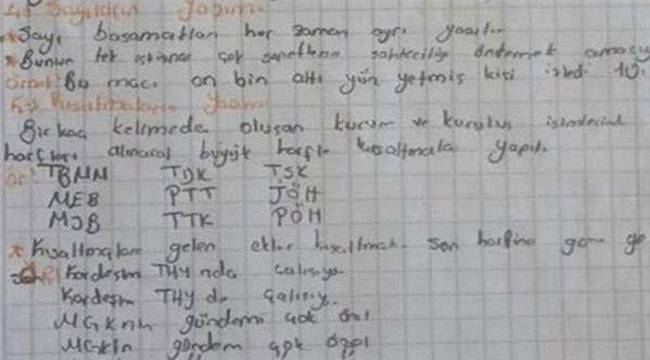 Sayıların yazımı
* Sayı basamakları her zaman ayrı yazılır.
* Bunun tek istisnası çek senetlerde sahteciliği önlemek amacıy
Örnek: Bu maçı on bin altı yüz yetmiş kişi izledi. 10.
Kısaltmaların yazımı
Birkaç kelimeden oluşan kurum ve kuruluş isimlerinin
harfleri alınarak büyük harfle kısaltmala yapılı.
ör: TBMM TDK TSK
MEB PTT JÖH
MSB TTK PÖH
* Kısaltmaları gelen ekler kısaltmanı son harfine göre ge
Kardeşim THY nda çalışıyo.
Kardeşim THY de çalışıyo.
MGK nın gündemi çok özel
MGK'ın gündem çok özel